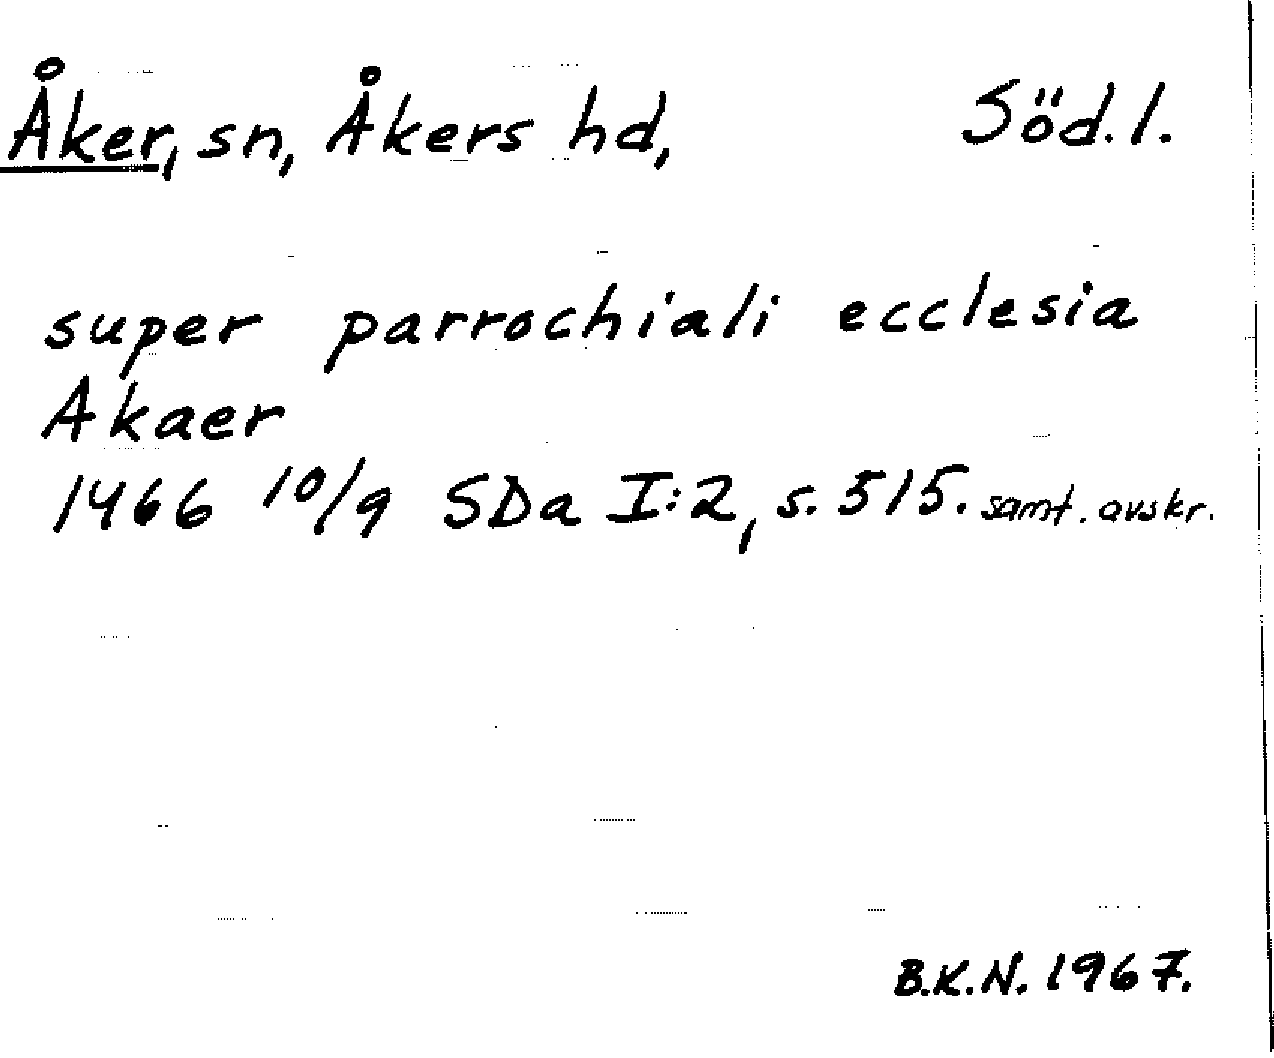 Åker, sn, Åkers hd, Söd. l.
super parrochiali ecclesia
Akaer
1466 10/9 SDa I:2, s. 515. samt. avskr.
B.K.N. 1967.